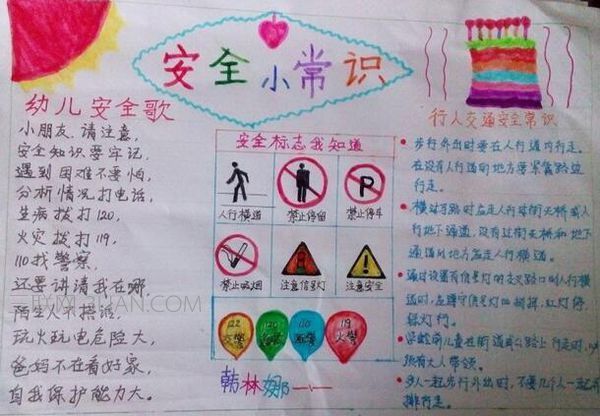 安全小常识
幼儿安全歌
小朋友,请注意,
安全知识要牢记,
遇到困难不要怕,
分析情况打电话,
生病拨打120,
火灾拨打119,
110找警察,
还要讲请我在哪,
陌生人不搭话,
玩火玩电危险大,
爸妈不在看好家,
自我保护能力大。
安全标志我知道
人行横道
禁止停留
P
禁止停车
禁止吸烟
注意信号灯
注意安全
122
交警
120
急警
110
匪警
119
火警
韩林娜
行人交通安全常识
步行外出时要在人行道内行走。
在没有人行道的地方要紧靠路边
行走。
横过马路时应走人行过街天桥或人
行地下通道,没有过街天桥和地下
通道的地方应走人行横道。
通过设置有信号灯的交叉路口的人行横
道时,应遵守信号灯的指挥,红灯停,
绿灯行。
学龄前儿童在街道或公路上行走时,
须有大人带领。
多人一起步行外出时,不要几个人一起
排行走。